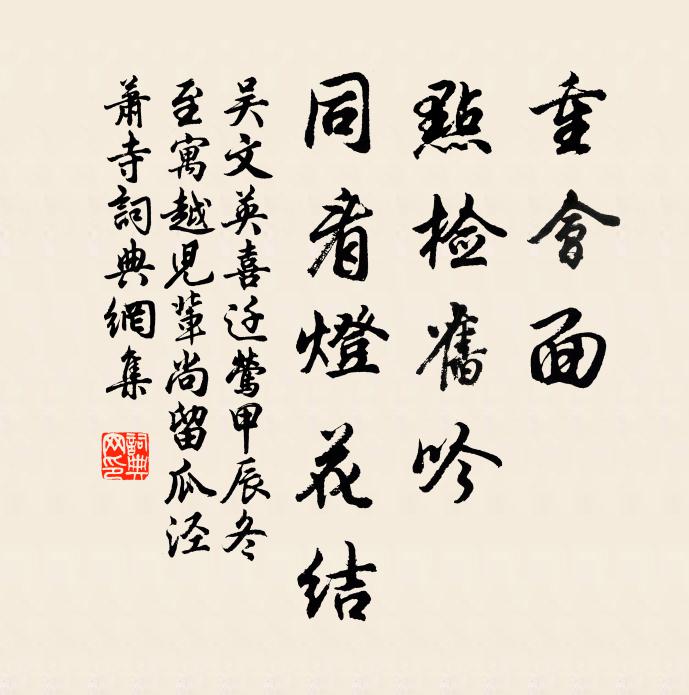 重會面
點檢舊吟
同看燈花結
吳文英喜迁鶯甲辰冬
至寓越兒輩尚留瓜泾
蕭寺詞典網集
詞典网印